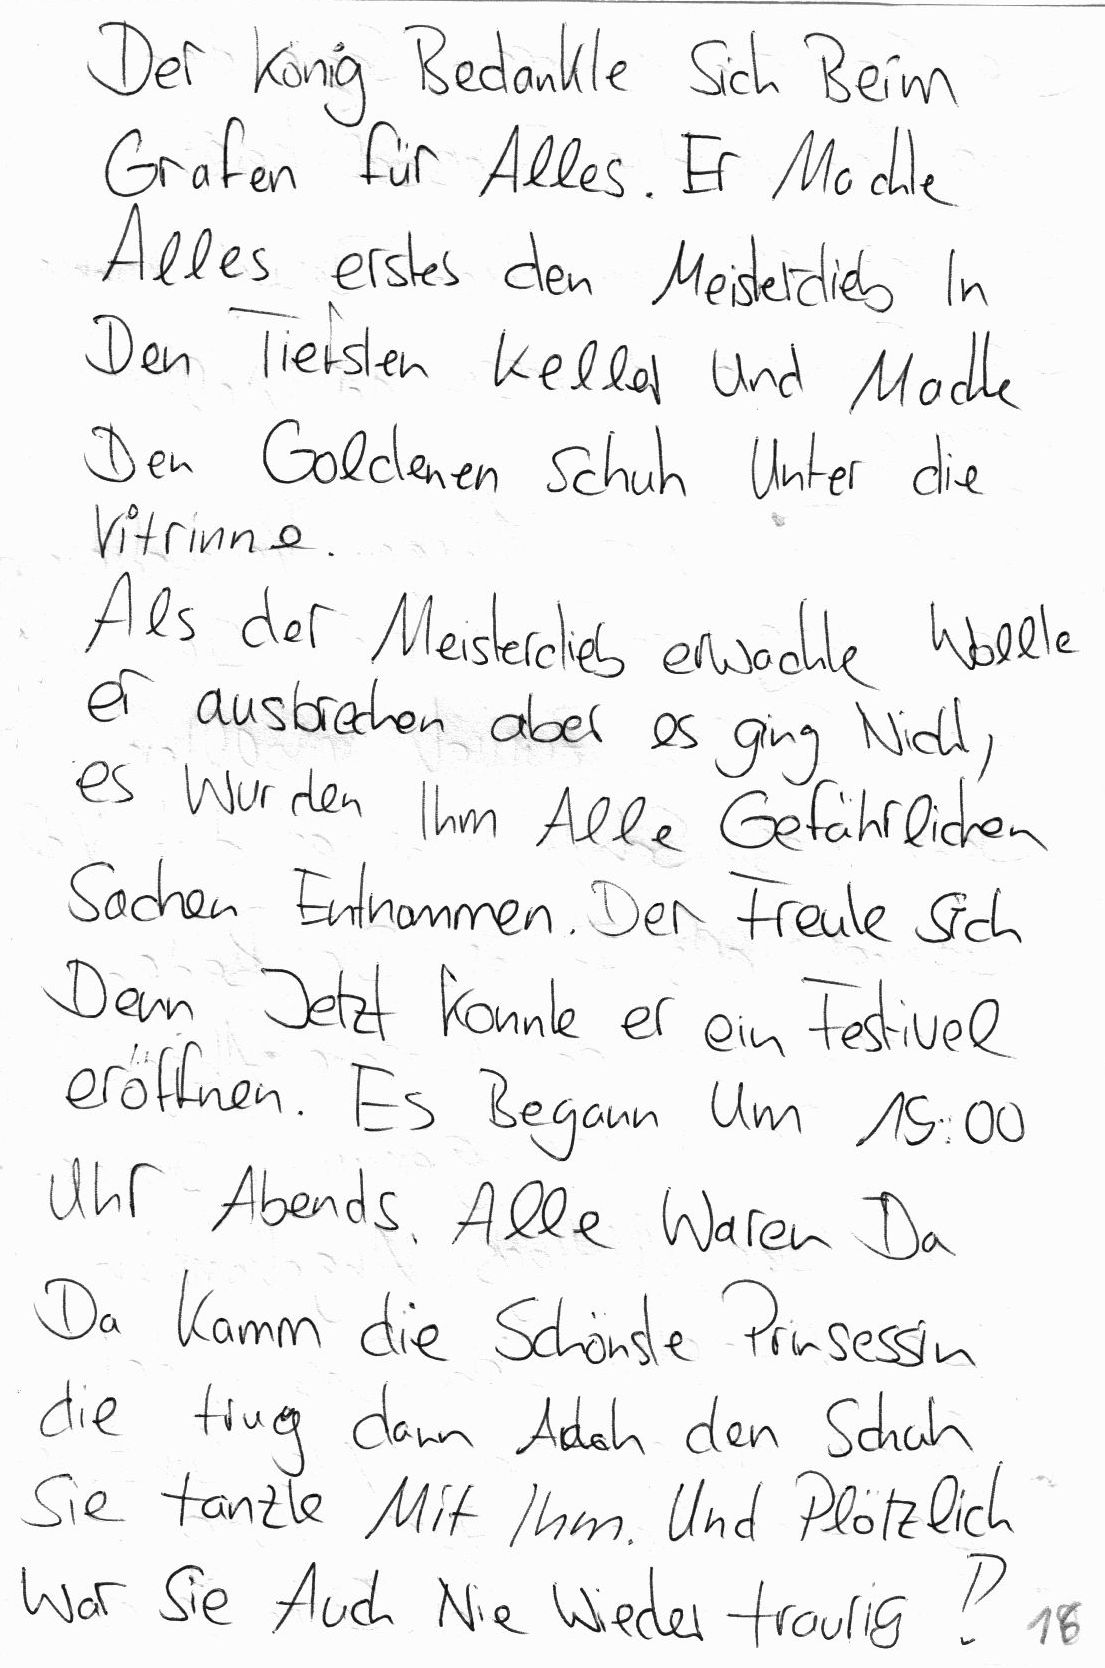 Der König Bedankte Sich Beim
Grafen für Alles. Er Machte
Alles erstes den Meisterdieb In
Den Tiefsten Keller Und Machte
Den Goldenen Schuh Unter die
Vitrinne.
Als der Meisterdieb erwachte Wollte
er ausbrechen aber es ging Nicht,
es Wurden Ihm Alle Gefährlichen
Sachen Entnommen. Der Freute Sich
Denn Jetzt Konnte er ein Festivel
eröffnen. Es Begann Um 15:00
Uhr Abends. Alle Waren Da
Da Kamm die Schönste Prinsessin
die trug dann den Schuh
Sie tanzte Mit Ihm. Und Plötzlich
War Sie Auch Nie Wieder traurig!
18